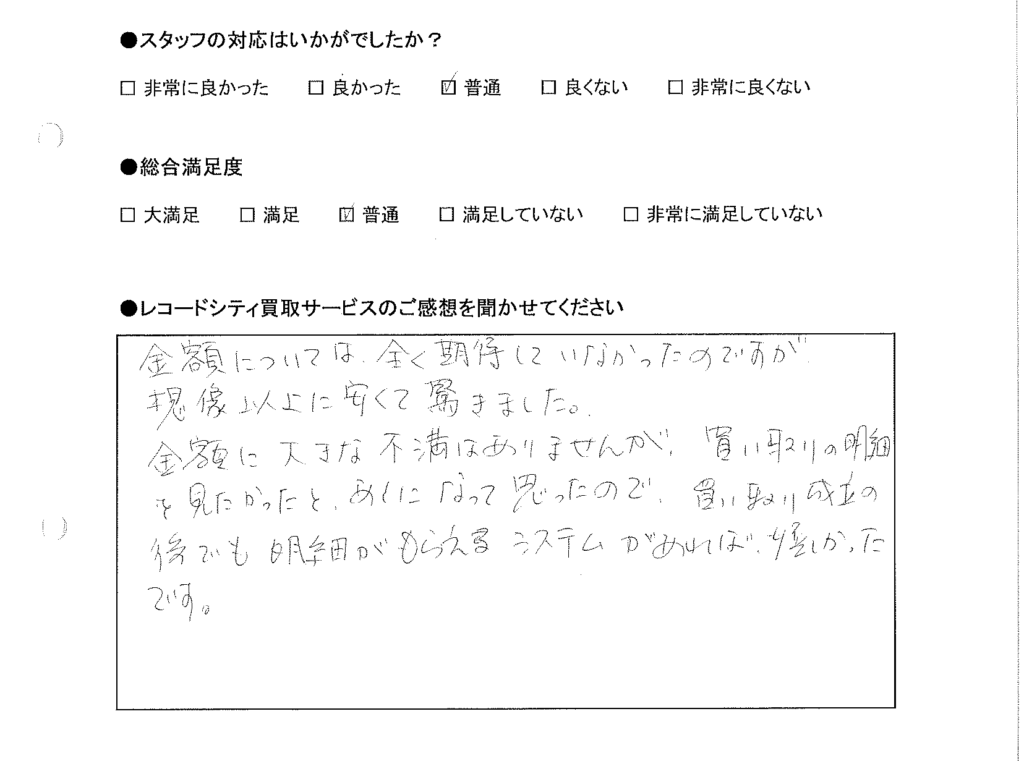 ●スタッフの対応はいかがでしたか？
□ 非常に良かった □ 良かった ☑ 普通 □ 良くない □ 非常に良くない
●総合満足度
□ 大満足 □ 満足 ☑ 普通 □ 満足していない □ 非常に満足していない
●レコードシティ買取サービスのご感想を聞かせてください
金額については、全く期待していなかったのですが、
想像以上に安くて驚きました。
金額に大きな不満はありませんが、買い取りの明細
を見たかったと、あとになって思ったので、買い取り成立の
後でも明細がもらえるシステムがあれば、嬉しかった
です。